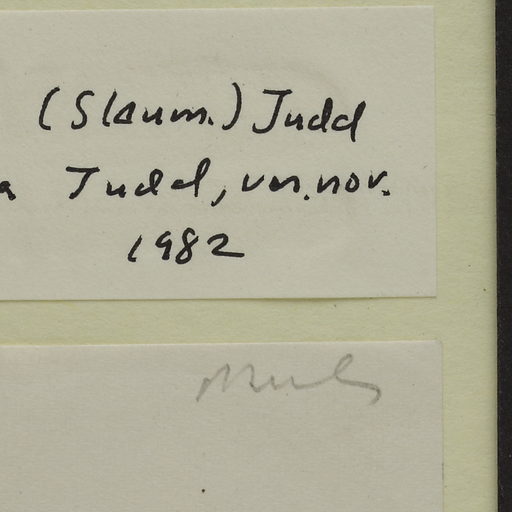 (Slaum.) Judd
a Judd, var. nov.
1982